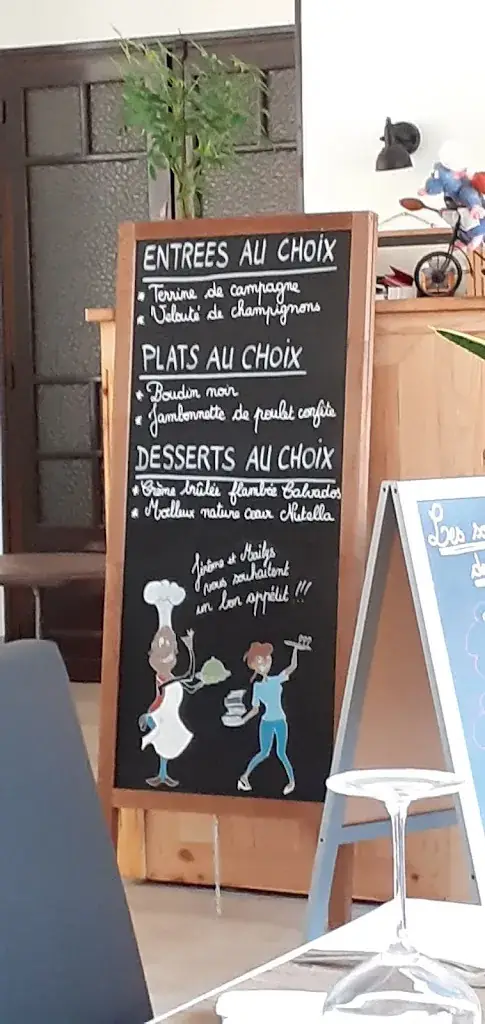 ENTREES AU CHOIX
* Terrine de campagne
* Velouté de champignons
PLATS AU CHOIX
* Boudin noir
* Jambonnette de poulet confite
DESSERTS AU CHOIX
* Crème brûlée flambée Calvados
* Moelleux nature cœur Nutella
Jérôme et Maïlys
vous souhaitent
un bon appétit !!!
Les